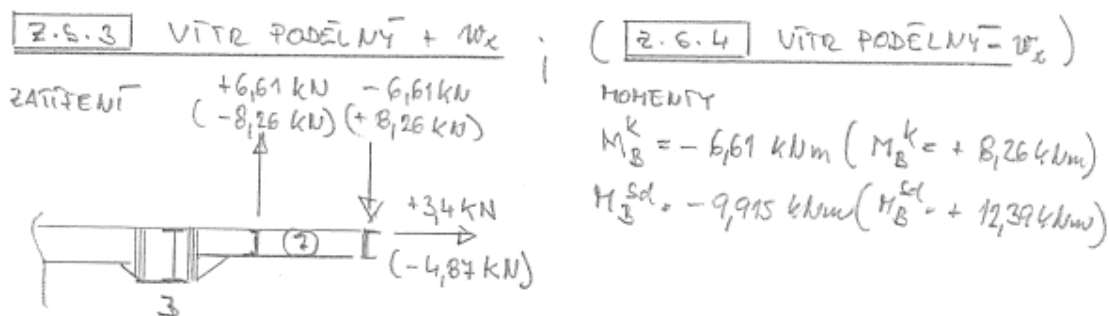 Z.S.3 VÍTR PODÉLNÝ + wx ; ( Z.S.4 VÍTR PODÉLNÝ - wx )
ZATÍŽENÍ
+6,61 kN -6,61 kN
(-8,26 kN) (+8,26 kN)
+3,4 KN
(-4,87 KN)
2
3
MOMENTY
M_B^k = -6,61 kNm ( M_B^k = + 8,26 kNm )
M_B^Sd = -9,915 kNm ( M_B^Sd = + 12,39 kNm )